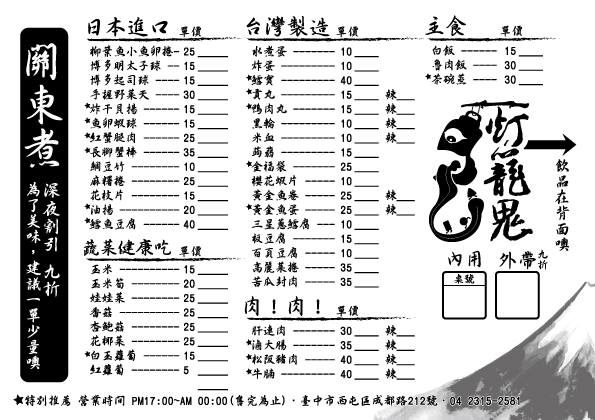 關東煮
深夜割引 九折
為了美味，建議一單少量噢
日本進口 單價
柳葉魚小魚卵捲- 25
博多明太子球 --- 15
博多起司球 ---- 15
手握野菜天 ---- 30
★炸干貝揚 ------ 15
★魚卵蝦球 ------ 15
★紅蟹腿肉 ------ 25
★長腳蟹棒 ------ 35
鯛豆竹 -------- 10
麻糬捲 -------- 25
花枝片 -------- 15
★油揚 ---------- 20
★鱈魚豆腐 ------ 40
蔬菜健康吃 單價
玉米 ---------- 15
玉米筍 -------- 20
娃娃菜 -------- 25
香菇 ---------- 25
杏鮑菇 -------- 25
花椰菜 -------- 25
★白玉蘿蔔 ------ 15
紅蘿蔔 -------- 5
台灣製造 單價
水煮蛋 -------- 10
炸蛋 ---------- 10
★鱈寶 ---------- 40
★貢丸 ---------- 15 辣
★鴨肉丸 -------- 15 辣
黑輪 ---------- 10 辣
米血 ---------- 10 辣
蒟蒻 ---------- 15
★金福袋 -------- 25
櫻花蝦片 ------ 10
黃金魚卷 ------ 25 辣
★黃金魚蛋 ------ 25 辣
三星蔥鱈腐 --- 10
板豆腐 -------- 15
百頁豆腐 ------ 10
高麗菜捲 ------ 35
苦瓜封肉 ------ 35
肉！肉！ 單價
肝連肉 -------- 30 辣
★滷大腸 -------- 35 辣
★松阪豬肉 ------ 40 辣
★牛腩 ---------- 40 辣
主食 單價
白飯 ------ 15
魯肉飯 --- 30
★茶碗蒸 --- 30
灯籠鬼
飲品在背面噢
內用 外帶九折
桌號
★特別推薦 營業時間 PM17:00~AM 00:00(售完為止)·臺中市西屯區成都路212號·04 2315-2581